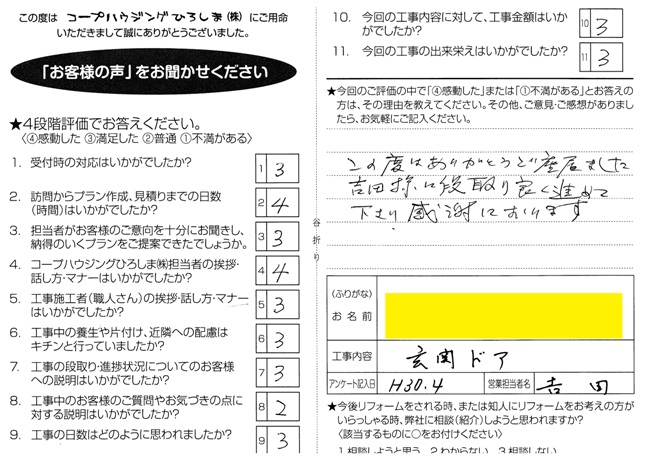 この度は コープハウジングひろしま(株) にご用命
いただきまして誠にありがとうございました。
「お客様の声」をお聞かせください
★4段階評価でお答えください。
〈④感動した ③満足した ②普通 ①不満がある〉
1. 受付時の対応はいかがでしたか?
1 3
2. 訪問からプラン作成、見積りまでの日数
(時間)はいかがでしたか?
2 4
3. 担当者がお客様のご意向を十分にお聞きし、
納得のいくプランをご提案できたでしょうか。
3 3
4. コープハウジングひろしま㈱担当者の挨拶・
話し方・マナーはいかがでしたか?
4 4
5. 工事施工者(職人さん)の挨拶・話し方・マナー
はいかがでしたか?
5 3
6. 工事中の養生や片付け、近隣への配慮は
キチンと行っていましたか?
6 3
7. 工事の段取り・進捗状況についてのお客様
への説明はいかがでしたか?
7 3
8. 工事中のお客様のご質問やお気づきの点に
対する説明はいかがでしたか?
8 2
9. 工事の日数はどのように思われましたか?
9 3
谷折り
10. 今回の工事内容に対して、工事金額はいか
がでしたか?
10 3
11. 今回の工事の出来栄えはいかがでしたか?
11 3
★今回のご評価の中で「④感動した」または「①不満がある」とお答えの
方は、その理由を教えてください。その他、ご意見・ご感想がありまし
たら、お気軽にご記入ください。
この度はありがとうご座居ました
吉田様は段取り良く進めて
下さり感謝しております
(ふりがな)
お名前
工事内容 玄関ドア
アンケート記入日 H30.4 営業担当者名 吉田
★今後リフォームをされる時、または知人にリフォームをお考えの方が
いらっしゃる時、弊社に相談(紹介)しようと思われますか?
〈該当するものに○をお付けください〉
1.相談しようと思う 2.わからない 3.相談しない